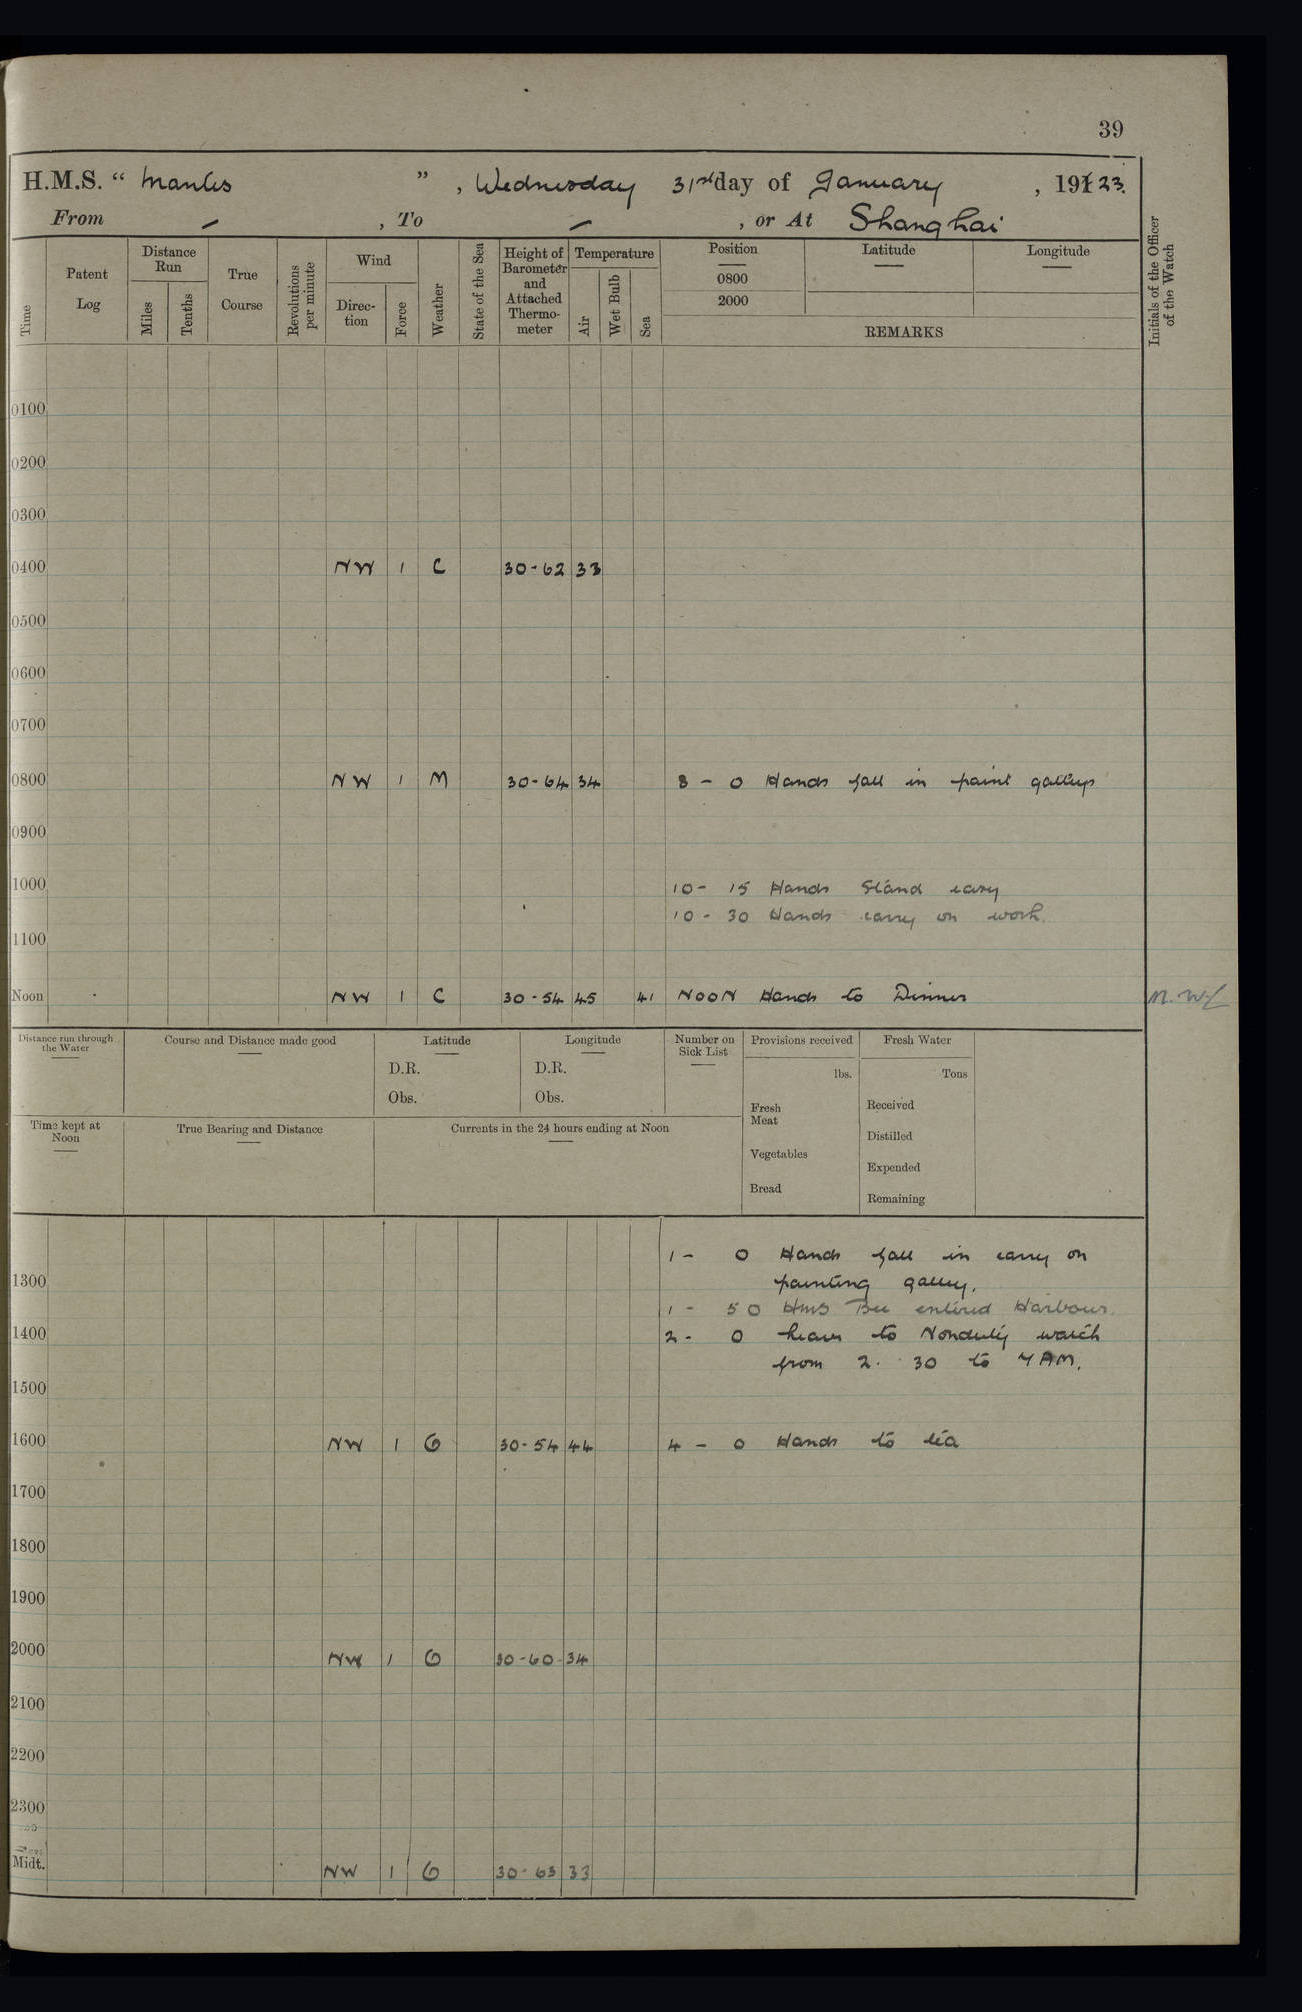 39
H.M.S. " Mantis ", Wednesday 31st day of January, 1923.
From - , To - , or At Shanghai
Time
Patent Log
Distance Run
Miles
Tenths
True Course
Revolutions per minute
Wind
Direc-tion
Force
Weather
State of the Sea
Height of Barometer and Attached Thermo-meter
Temperature
Air
Wet Bulb
Sea
Position
0800
2000
Latitude
Longitude
REMARKS
Initials of the Officer of the Watch
0100
0200
0300
0400 NW 1 C 30-62 33
0500
0600
0700
0800 NW 1 M 30-64 34 8 - 0 Hands fall in paint galley
0900
1000 10 - 15 Hands Stand easy
10 - 30 Hands carry on work.
1100
Noon NW 1 C 30-54 45 41 NOON Hands to Dinner
Distance run through the Water
Course and Distance made good
Latitude
D.R.
Obs.
Longitude
D.R.
Obs.
Number on Sick List
Provisions received
lbs.
Fresh Meat
Vegetables
Bread
Fresh Water
Tons
Received
Distilled
Expended
Remaining
Time kept at Noon
True Bearing and Distance
Currents in the 24 hours ending at Noon
1 - 0 Hands fall in carry on
1300 painting galley.
1 - 50 HMS Bee entered Harbour.
1400 2 - 0 leave to Nonduty watch
from 2. 30 to 7 AM.
1500
1600 NW 1 G 30-54 44 4 - 0 Hands to tea
1700
1800
1900
2000 NW 1 G 30-60 34
2100
2200
2300
Midt. NW 1 G 30-63 33